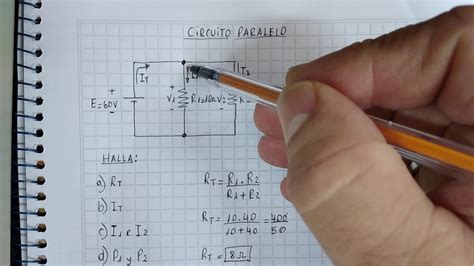 CIRCUITO PARALELO
IT
I2
E=60V
+
V1
R1=10Ω
V2
+
-
HALLA:
a) RT
b) IT
c) I1 e I2
d) P1 y P2
RT = R1 . R2
R1 + R2
RT = 10.40 = 400
10+40 50
RT = 8Ω